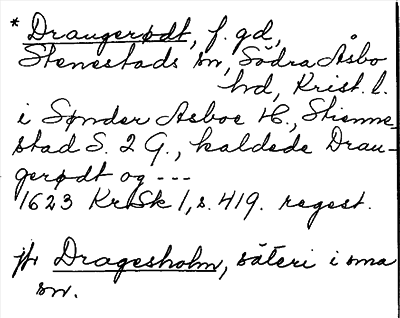 * Draugerødt, f. gd,
Stenestads sn, Södra Åsbo
hd, Krist. l.
i Sønder Asboe H., Stienne-
stad S. 2 G., kaldede Drau-
gerødt og ---
1623 KrSk 1, s. 419. regest.
jfr Dragesholm, säteri i sma
sn.